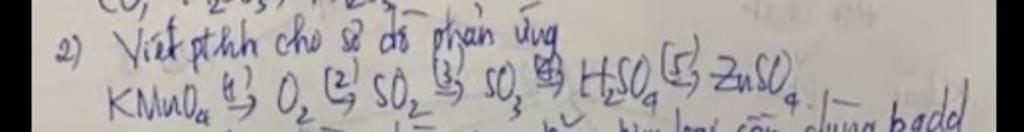 2) Viết pthh cho sơ đồ phản ứng
KMnO₄ (1)→ O₂ (2)→ SO₂ (3)→ SO₃ (4)→ H₂SO₄ (5)→ ZnSO₄
dùng